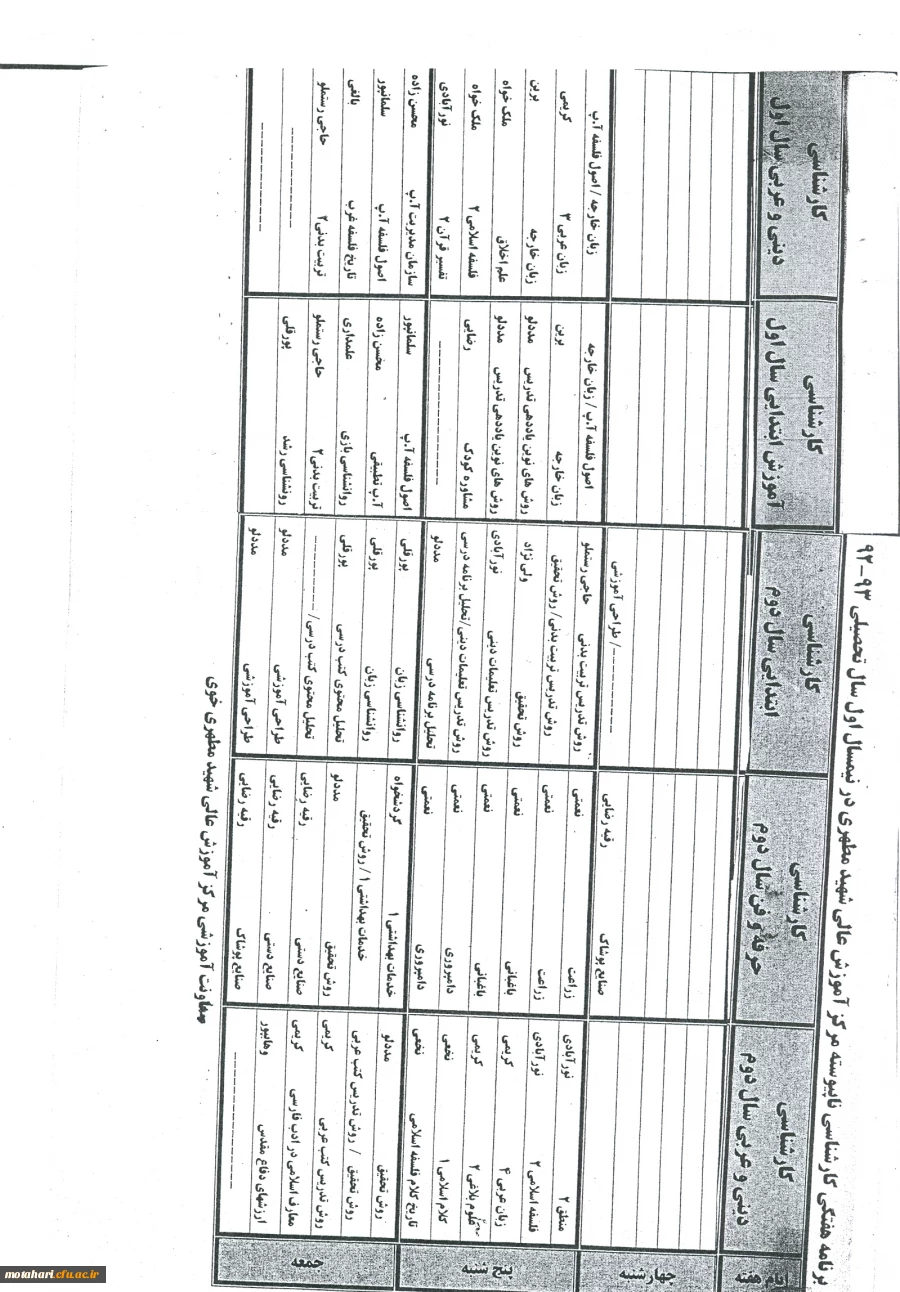 برنامه هفتگی کارشناسی ناپیوسته مرکز آموزش عالی شهید مطهری در نیمسال اول سال تحصیلی ۹۳-۹۲
ایام هفته کارشناسی کارشناسی کارشناسی کارشناسی کارشناسی
دینی و عربی سال دوم حرفه و فن سال دوم ابتدایی سال دوم آموزش ابتدایی سال اول دینی و عربی سال اول
چهارشنبه
صنایع پوشاک رقیه رضایی ----------/ طراحی آموزشی
پنج شنبه
منطق ۲ نورآبادی زراعت نعمتی روش تدریس تربیت بدنی حاجی رستملو اصول فلسفه آ.پ / زبان خارجه زبان خارجه / اصول فلسفه آ.پ
فلسفه اسلامی ۲ نورآبادی زراعت نعمتی روش تدریس تربیت بدنی/ روش تحقیق زبان خارجه برین زبان عربی ۳ کریمی
زبان عربی ۴ کریمی باغبانی نعمتی روش تحقیق ولی نژاد روش های نوین یاددهی تدریس مددلو زبان خارجه برین
علوم بلاغی ۲ کریمی باغبانی نعمتی روش تدریس تعلیمات دینی نورآبادی روش های نوین یاددهی تدریس مددلو علم اخلاق ملک خواه
کلام اسلامی ۱ نخعی دامپروری نعمتی روش تدریس تعلیمات دینی/تحلیل برنامه درسی مشاوره کودک رضایی فلسفه اسلامی ۲ ملک خواه
تاریخ کلام فلسفه اسلامی نخعی دامپروری نعمتی تحلیل برنامه درسی مددلو -------------- تفسیر قرآن ۲ نورآبادی
جمعه
روش تحقیق مددلو خدمات بهداشتی ۱ گردشخواه روانشناسی زبان پورقلی اصول فلسفه آ.پ سلمانپور سازمان مدیریت آ.پ محسن زاده
روش تحقیق / روش تدریس کتب عربی خدمات بهداشتی ۱ / روش تحقیق روانشناسی زبان پورقلی آ.پ تطبیقی محسن زاده اصول فلسفه آ.پ سلمانپور
روش تدریس کتب عربی کریمی روش تحقیق مددلو تحلیل محتوی کتب درسی پورقلی روانشناسی بازی علمداری تاریخ فلسفه غرب بالغی
معارف اسلامی در ادب فارسی کریمی صنایع دستی رقیه رضایی تحلیل محتوی کتب درسی/ ---------- تربیت بدنی۲ حاجی رستملو تربیت بدنی۲ حاجی رستملو
ارزشهای دفاع مقدس وهابپور صنایع دستی رقیه رضایی طراحی آموزشی مددلو رونشناسی رشد پورقلی --------------
-------------- صنایع پوشاک رقیه رضایی طراحی آموزشی مددلو --------------
معاونت آموزشی مرکز آموزش عالی شهید مطهری خوی
motahari.cfu.ac.ir